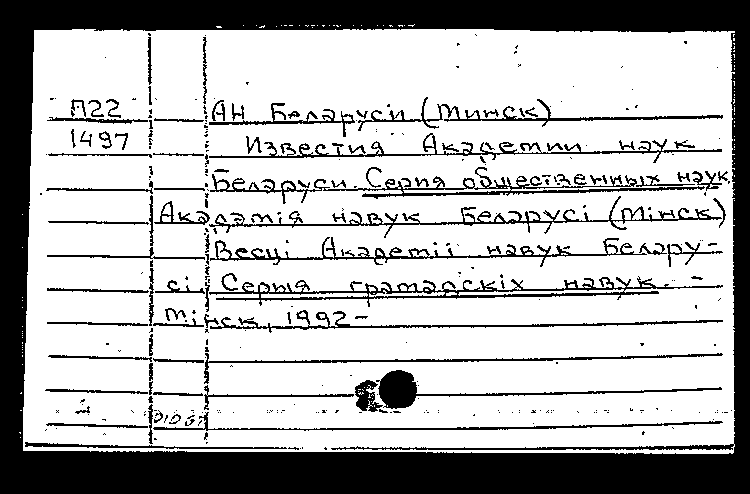 П22 АН Беларуси (Минск)
1497 Известия Академии наук
Беларуси. Серия общественных наук.
Акадэмія навук Беларусі (Мінск)
Весці Акадэміі навук Белару-
сі. Серыя грамадскіх навук. -
Мінск, 1992-